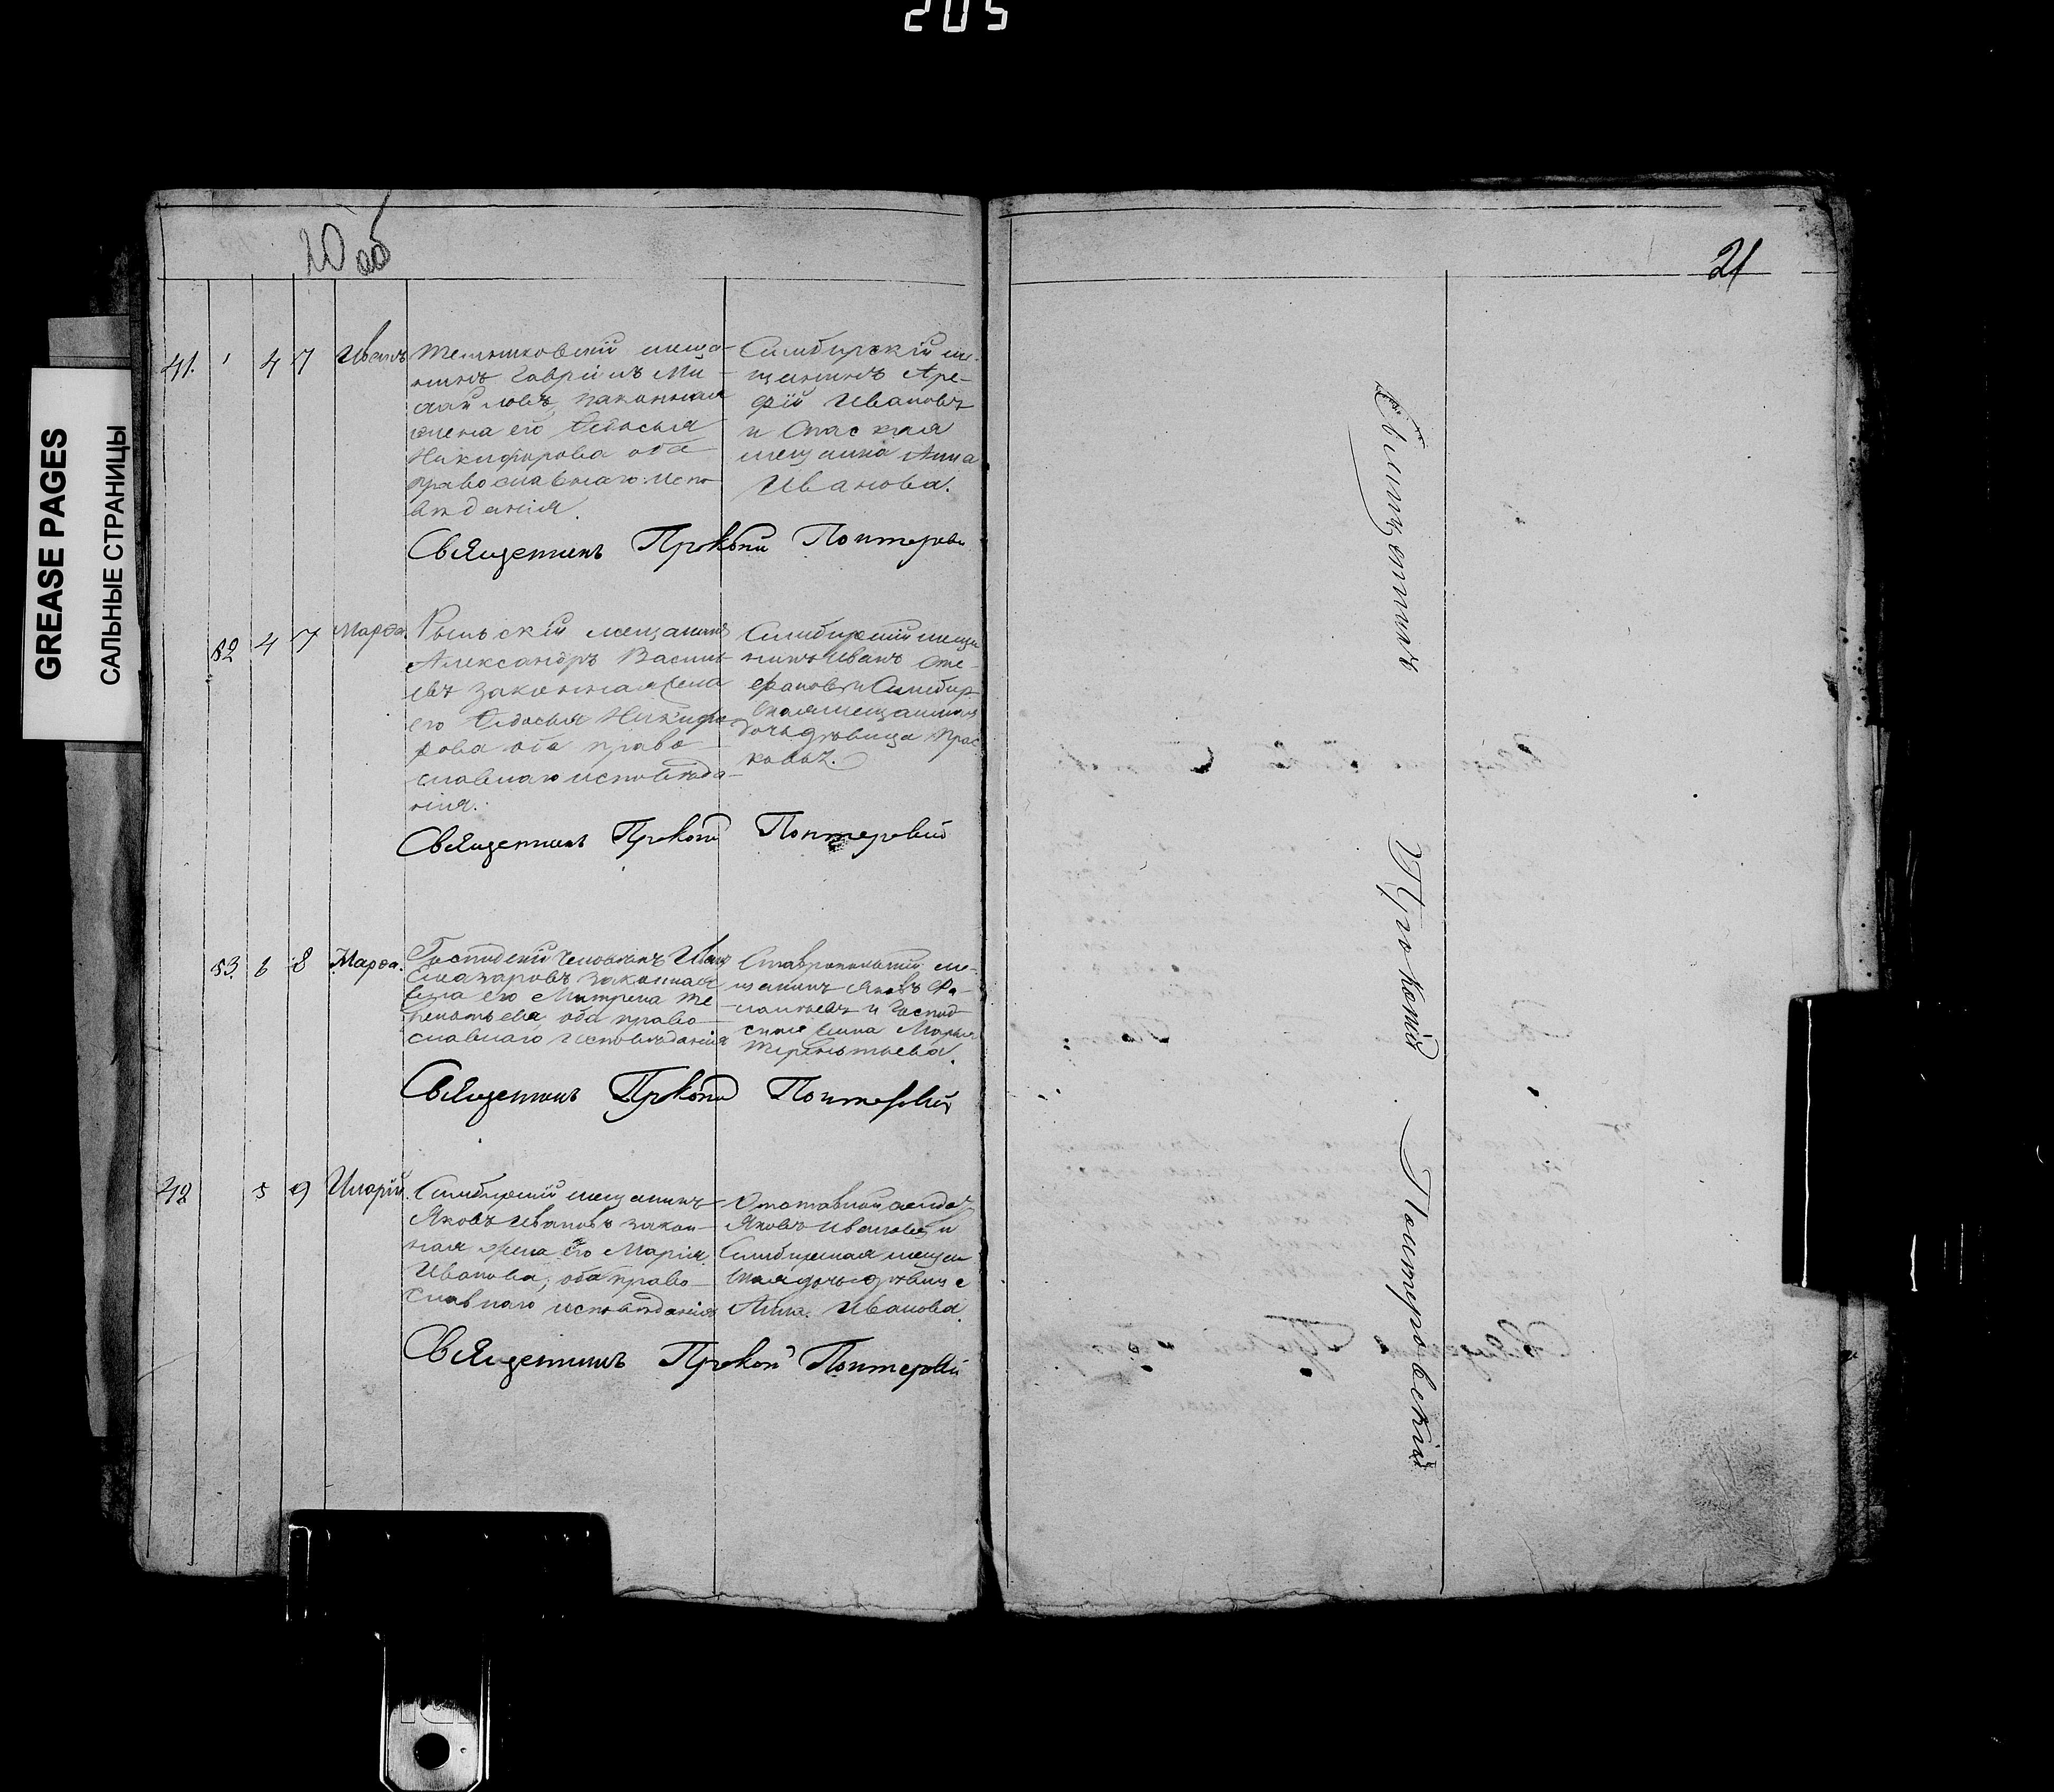 205
GREASE PAGES
САЛЬНЫЕ СТРАНИЦЫ
20 об
41. 4 7 Иванъ
мѣща-
нинъ Гавріилъ Ми-
хайловъ, законная
жена его Ѳедосья
Никифорова оба
православнаго испо-
вѣданія.
Симбирскій мѣ-
щанинъ Аре-
фій Ивановъ
и Спаская
мещанка Анна
Иванова.
Священникъ Прокопій
52 4 7 Марѳа
Рыльскій мещанинъ
Александръ Василь-
евъ законная жена
его Ѳедосья Никифо-
рова оба право-
славнаго исповѣда-
нія.
Симбирскій меща-
нинъ Иванъ Сте-
фановъ и Симбир-
ская мещанская
дочь дѣвица Прас-
ковья.
Священникъ Прокопій
53. 6 8 Марѳа.
Господскій человѣкъ Иванъ
законная
жена его Матрена Те-
рентьева, оба право-
славнаго исповѣданія
Ставропольскій мѣ-
щанинъ Яковъ
и Господ-
Марья
Терентьева.
Священникъ Прокопій
42 5 9 Иларій.
Симбирскій мещанинъ
Яковъ Ивановъ закон-
ная жена его Марія
Иванова, оба право-
славнаго исповѣданія
Отставной солдатъ
Яковъ Ивановъ и
Симбирская мещан-
ская дочь дѣвица
Анна Иванова.
Священникъ Прокопій
21
Священникъ Прокопій